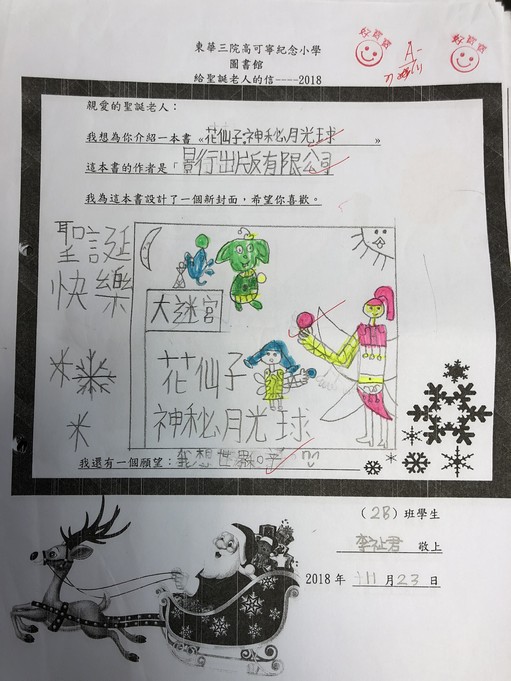 東華三院高可寧紀念小學
圖書館
給聖誕老人的信----2018
好寶寶
A-
好寶寶
親愛的聖誕老人：
我想為你介紹一本書《花仙子:神秘月光球》
這本書的作者是「景行出版有限公司
我為這本書設計了一個新封面，希望你喜歡。
聖誕
快樂
大迷宮
花仙子
神秘月光球
我還有一個願望：我想世界
(2B)班學生
敬上
2018年 11月23日